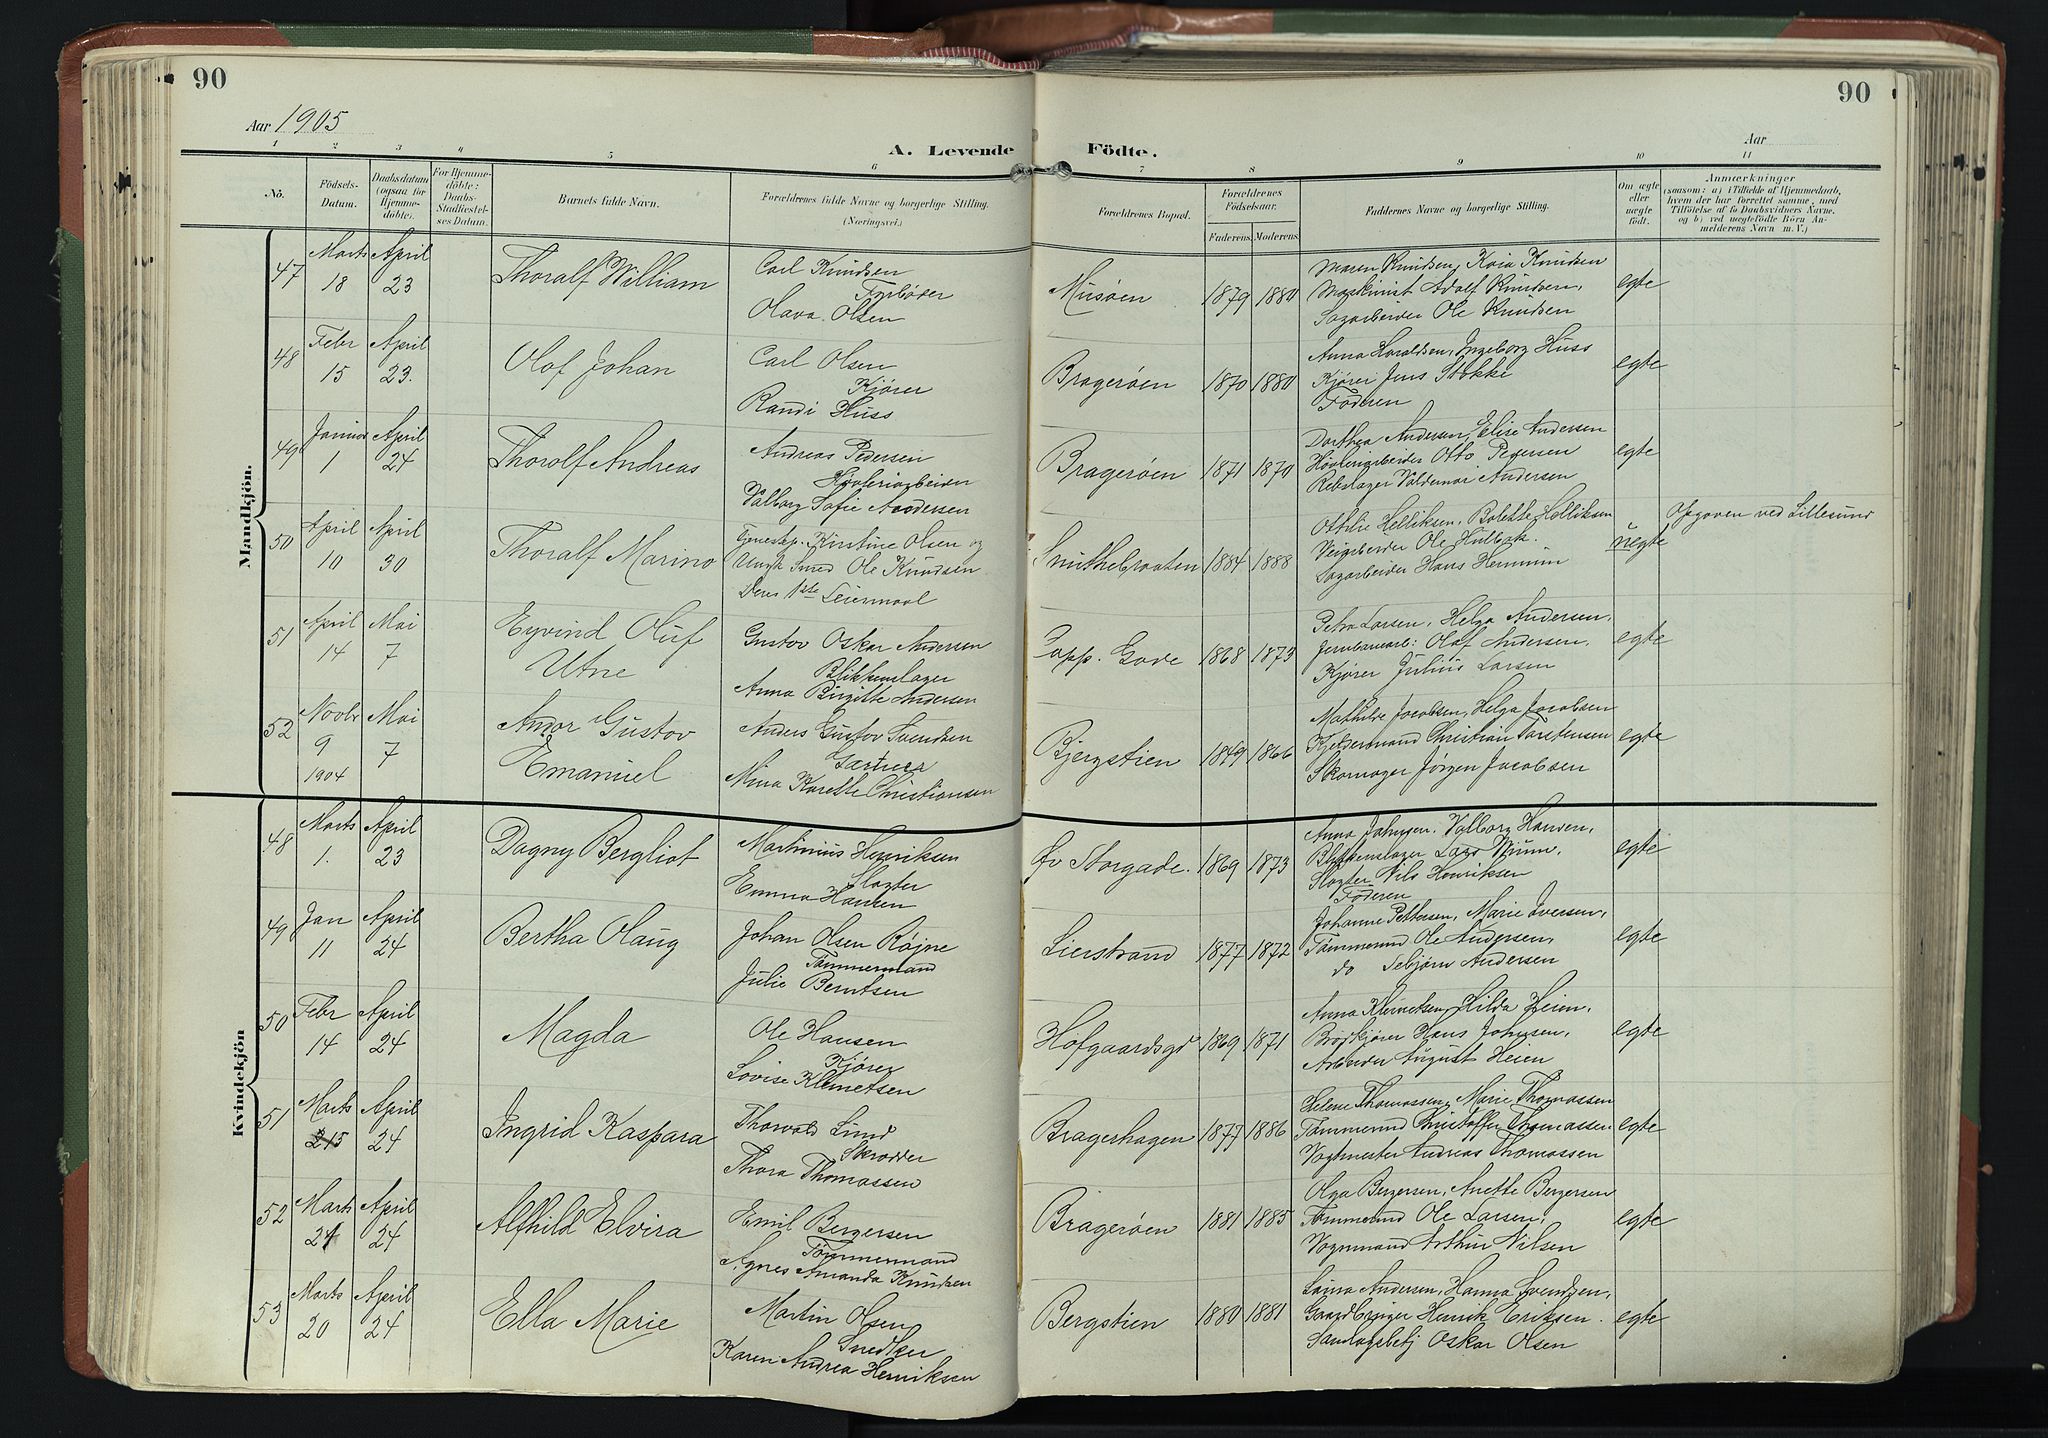 90
90
Aar 1905
Aar
A. Levende Födte.
1 2 3 4 5 6 7 8 9 10 11
No.
Födsels-Datum.
Daabsdatum (ogsaa för Hjemmedöbte).
For Hjemmedöbte: Daabs-Stadfæstelses Datum.
Barnets fulde Navn.
Forældrenes fulde Navne og borgerlige Stilling. (Næringsvei.)
Forældrenes Bopæl.
Forældrenes Födselsaar.
Faderens. Moderens.
Faddernes Navne og borgerlige Stilling.
Om ægte eller uægte födt.
Anmærkninger
(saasom: a) i Tilfælde af Hjemmedaab, hvem der har forrettet samme, med Tilföielse af to Daabsvidners Navne, og b) ved uægtefödte Börn Anmelderens Navn m. V.)
Mandkjön.
47
Marts 18
April 23
Thoralf William
Carl Knudsen
Fyrbøder
Olava Olsen
Musøen
1879 1880
Maren Knudsen, Kaia Knudsen
Maskinist Adolf Knudsen,
Sagarbeider Ole Knudsen
egte
48
Febr 15
April 23.
Olaf Johan
Carl Olsen
Kjører
Randi Huss
Bragerøen
1870 1880
Anna Haraldsen, Ingeborg Huss
Kjører Jens Stokke
Faderen
egte
49
Januar 1
April 24
Thoralf Andreas
Andreas Pedersen
Høvleriarbeider
Valborg Sofie Andersen
Bragerøen
1871 1870
Dorthea Andersen, Elise Andersen
Høvleriarbeider Otto Pedersen
Rebslager Valdemar Andersen
egte
50
April 10
April 30
Thoralf Marino
Tjenestep. Kirstine Olsen og
Ungk Smed Ole Knudsen
Deres 1ste Leiermaal
Smithebraaten
1884 1888
Ottilie Helliksen, Bolette Helliksen
Veiarbeider Ole Hulbak.
Sagarbeider Hans Hemmim
uegte
Opgaven ved Lillesund
51
April 14
Mai 7
Eyvind Oluf
Utne
Gustav Oskar Andersen
Blikkenslager
Anna Birgitte Andersen
Topp. Gade
1868 1873
Petra Larsen, Helga Andersen,
Jernbanearb: Olaf Andersen,
Kjører Julius Larsen
egte
52
Novbr 9 1904
Mai 7
Amor Gustav
Emanuel
Anders Gustav Svendsen
Gartner
Mina Karette Christiansen
Bjergstien
1849 1866
Mathilde Jacobsen, Helga Jacobsen
Kjeldermand Christian Torstensen
Skomager Jørgen Jacobsen
egte
Kvindekjön
48
Marts 1.
April 23
Dagny Bergliot
Martinius Henriksen
Slagter
Emma Hansen
Øv Storgade.
1869 1873
Anna Johnsen, Valborg Hansen,
Blikkenslager Lars Wium,
Slagter Nils Henriksen
Faderen
egte
49
Jan 11
April 24
Bertha Olaug
Johan Olsen Røine
Tømmermand
Julie Berntsen
Lierstrand
1877 1872
Johanne Pettersen, Marie Iversen,
Tømmermd Ole Andersen,
do Sebjørn Andersen
egte
50
Febr 14
April 24
Magda
Ole Hansen
Kjører
Lovise Klemetsen
Hofgaardsgd
1869 1871
Anna Klemetsen, Hilda Heien,
Brødkjører Hans Johnsen,
Arbeider August Heien
egte
51
Marts 15
April 24
Ingrid Kaspara
Thorvald Lund
Skrædder
Thora Thomassen
Bragerhagen
1877 1886
Helene Thomassen, Marie Thomassen
Tømmermd Christoffer Thomassen
Vogtmester Andreas Thomassen
egte
52
Marts 24
April 24
Alfhild Elvira
Emil Bergersen
Tømmermand
Agnes Amanda Knudsen
Bragerøen
1881 1885
Olga Bergersen, Anette Bergersen
Tømmermd Ole Larsen,
Vognmand Arthur Nilsen
egte
53
Marts 20
April 24
Ella Marie
Martin Olsen
Snedker
Karen Andrea Henriksen
Bergstien
1880 1881
Laura Andersen, Hanna Svendsen,
Gaardbruger Henrik Eriksen.
Oskar Olsen
egte